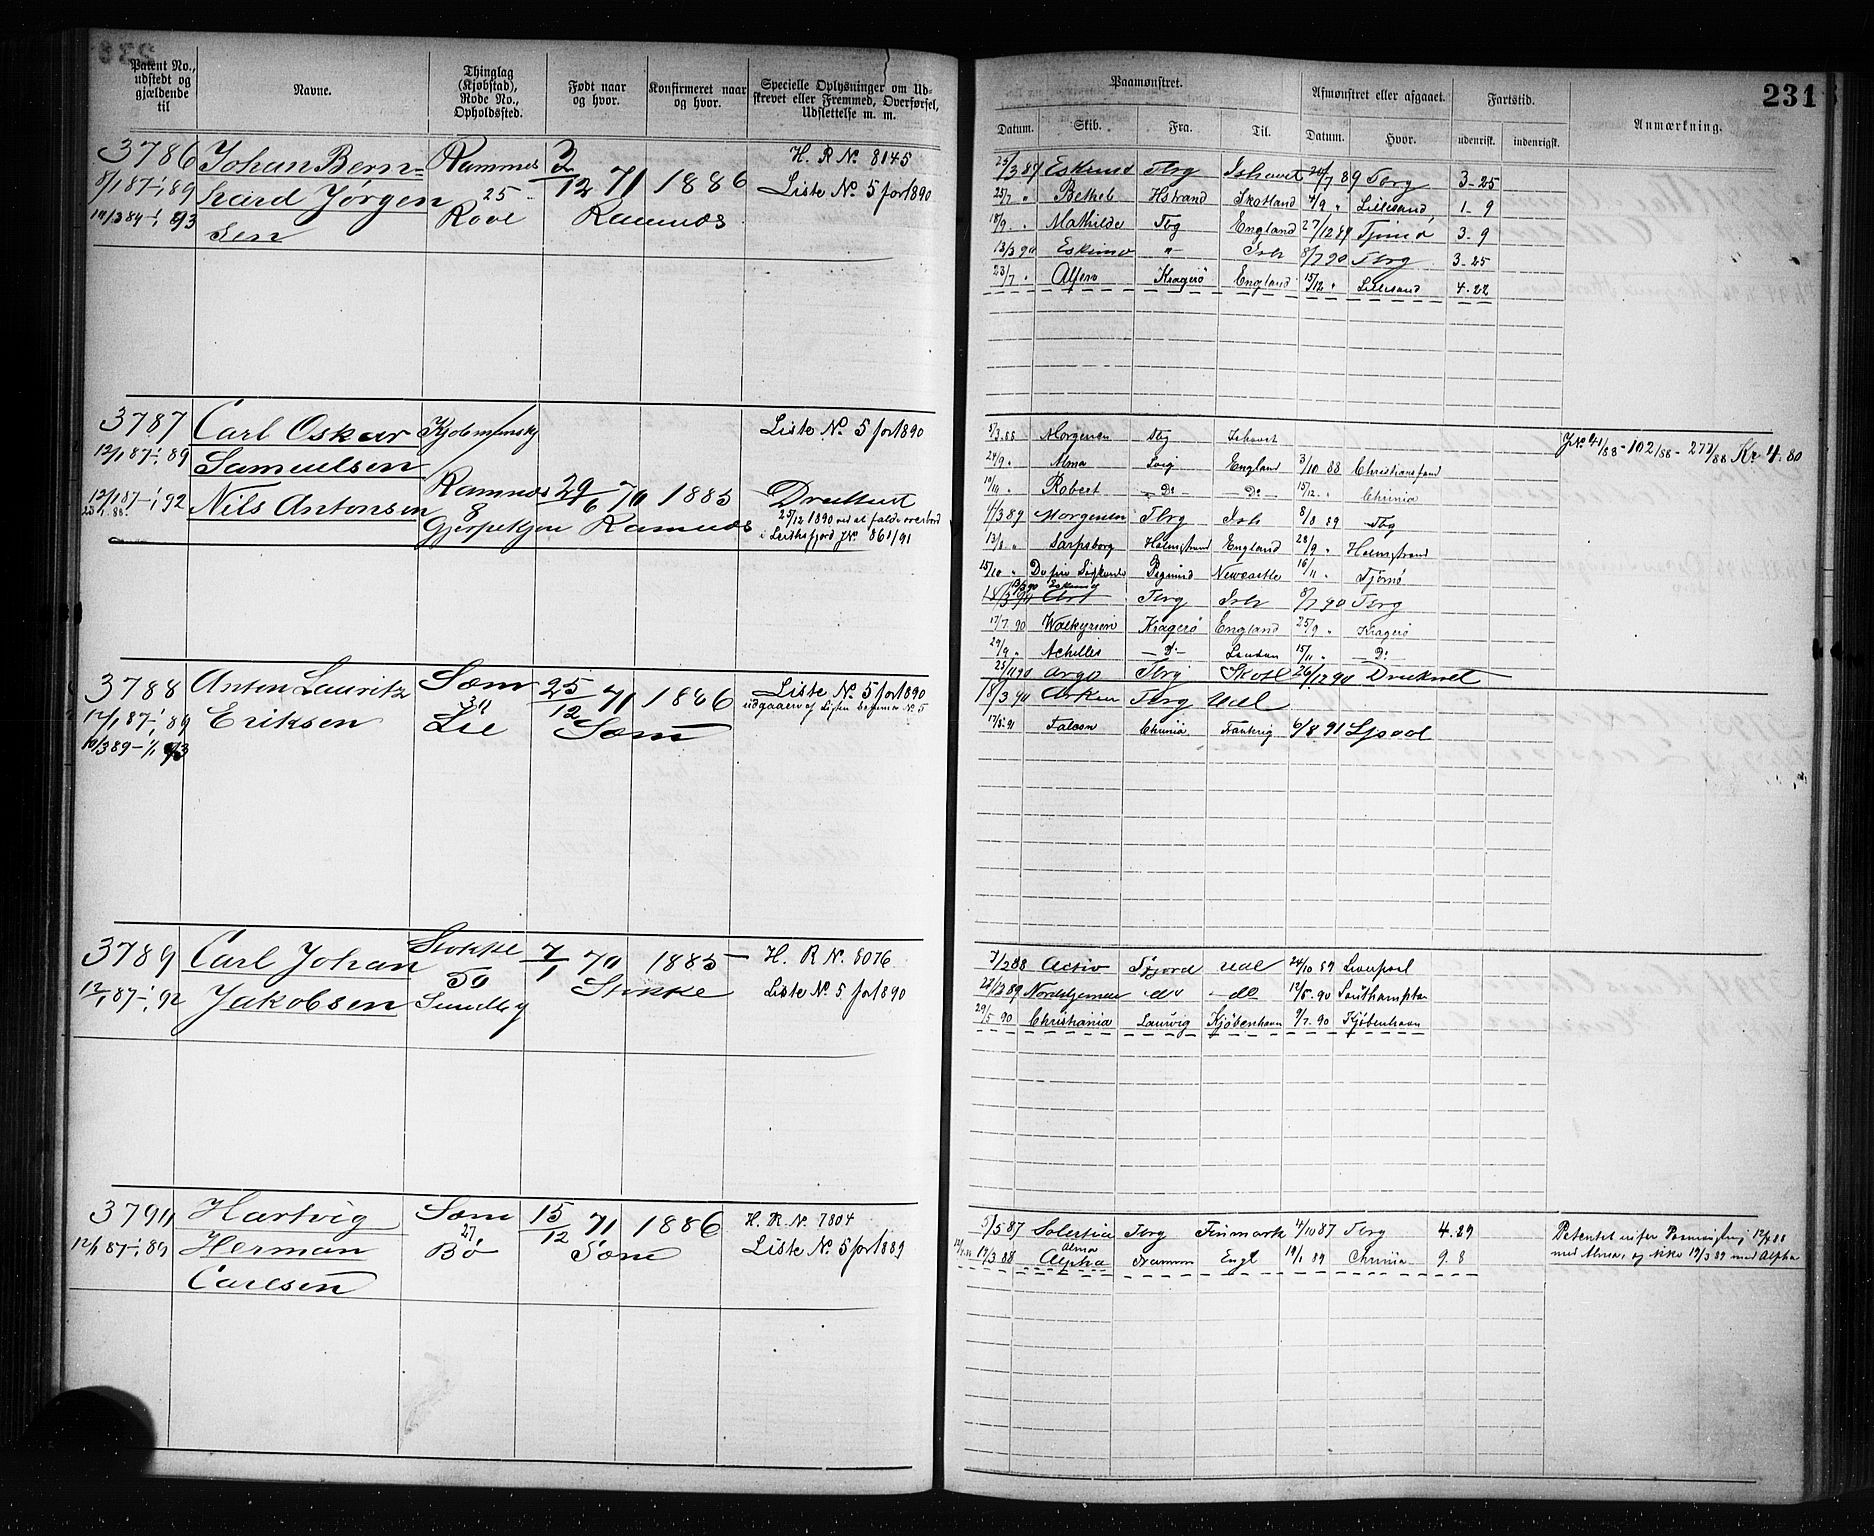 231
Patent No., udstedt og gjældende til
Navne.
Thinglag (Kjøbstad), Rode No., Opholdssted.
Født naar og hvor.
Konfirmeret naar og hvor.
Specielle Oplysninger om Udskrevet eller Fremmed, Overførsel, Udslettelse m. m.
Paamønstret.
Afmønstret eller afgaaet.
Fartstid.
Anmærkning.
Datum. Skib. Fra. Til. Datum. Hvor. udenrisk. indenrigsk.
3786 Johan Bern= Ramnes 3/12 71 1886 H. R No. 8145
8/1 87-1/1 89 hard Jørgen 25 Ramnæs Liste No. 5 for 1890
sen
25/3 89 Eskimo Tbrg Ishavet 24/7 89 Tbrg 3-25
25/7 " Hstrand Skotland 4/9 " Lillesand 1-9
18/9 " Mathilde Tbg England 27/12 89 Tjømø 3-9
13/3 90 Eskimo " Ish 8/7 90 Tbrg 3-25
23/7 " Alfero Kragerø England 15/12 " Lillesand 4-22
3787 Carl Oskar Liste No. 5 for 1890
12/1 87-1/1 89 Samuelsen
12/1 87-1/1 92 Nils Antonsen Ramnæs 8 29/6 70 1885 Ramnæs Druknet
25/12 1890 ved at falde overbord
J.No. 861/91
5/3 88 Morgenen Tbg Ishavet
24/9 " Alma Svig England 3/10 88 Christiansand
Robert - Do - - Do - 15/12 " Chrinia
4/3 89 Morgenen Tbrg Ish 8/8 89 Tbg
13/8 " Sarpsborg Holmstrand England 28/9 " Holmstrand
15/10 " Newcastle 16/11 " Tjømø
13/3 90 Eskimo
Tbrg Ish 8/7 90 Tbrg
17/7 90 Walkyrien Kragerø England 25/9 " Kragerø
29/9 " Achilles - Do - London 15/11 " - Do -
25/11 90 Argo Tbrg Skotl 26/12 90 Druknet
3788 Anton Lauritz Sæm 25/12 71 1886 Liste No. 5 for 1890
12/1 87-1/1 89 Eriksen Lie Sæm
10/3 89-1/1 93
18/3 90 Tbrg Udl
Falcon Chrinia Frankrig 6/8 91 Lpool
3789 Carl Johan Stokke 7/1 70 1885 H. R No. 8076
12/1 87-1/1 92 Jakobsen 50 Sundby Stokke Liste No. 5 for 1890
7/2 88 Activ Udl 24/10 89 Liverpool
Nordstjernen do - do 12/5 90 Southampton
29/5 90 Christiania Laurvig Kjøbenhavn 9/7 90 Kjøbenhavn
3790 Hartvig Sæm 15/12 71 1886 H. R No. 7804
12/1 87-1/1 89 Herman 27 Bø Sæm Liste No. 5 for 1889
Carlsen
5/5 87 Solertia Tbrg Finmark 4/10 87 Tbrg 4.29
Alma
19/3 88 Alpha Drammen Engl 19/1 89 Chrinia 9.8
med Alma, og ikke 19/3 89 med Alpha